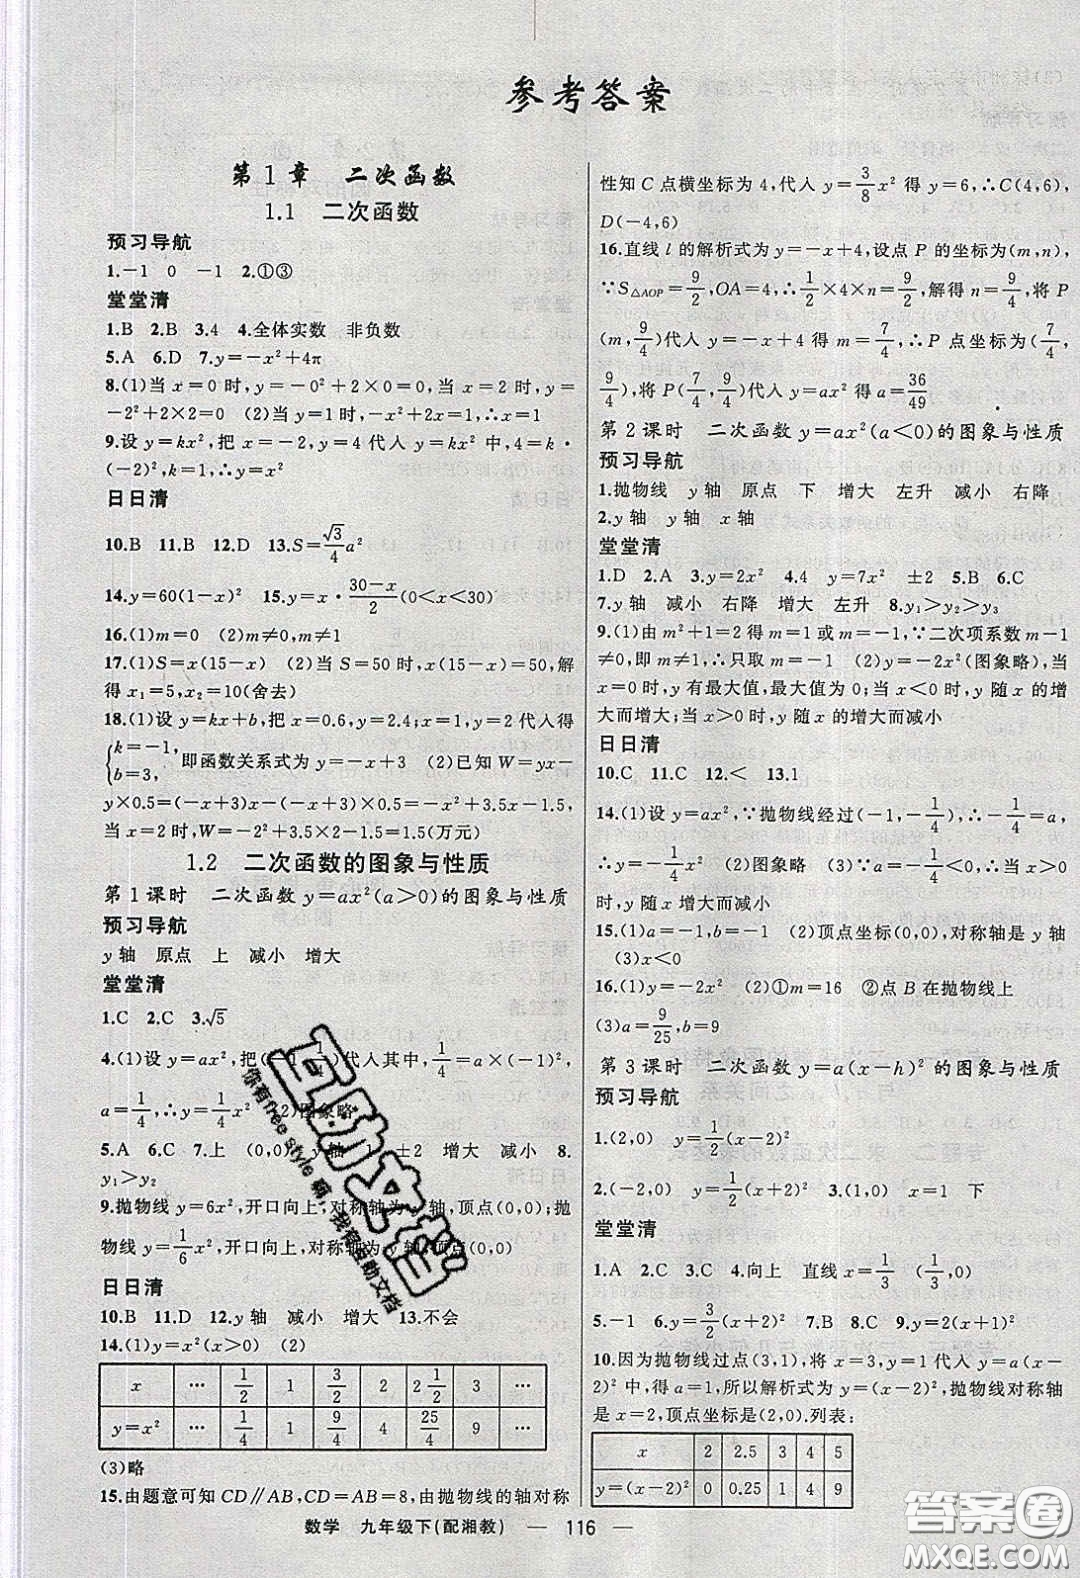 参考答案
第1章 二次函数
1.1 二次函数
预习导航
1.-1 0 -1 2.①③
堂堂清
1.B 2.B 3.4 4.全体实数 非负数
5.A 6.D 7.y=-x²+4π
8.(1)当x=0时,y=-0²+2×0=0,当x=2时,y=
-2²+2×2=0 (2)当y=1时,-x²+2x=1,∴x=1
9.设y=kx²,把x=-2,y=4代入y=kx²中,4=k·
(-2)²,k=1,∴y=x²
日日清
10.B 11.B 12.D 13.S=√3/4 a²
14.y=60(1-x)² 15.y=x·(30-x)/2(0<x<30)
16.(1)m=0 (2)m≠0,m≠1
17.(1)S=x(15-x) (2)当S=50时,x(15-x)=50,解
得x₁=5,x₂=10(舍去)
18.(1)设y=kx+b,把x=0.6,y=2.4;x=1,y=2代入得
{k=-1, b=3, 即函数关系式为y=-x+3 (2)已知W=yx-
y×0.5=(-x+3)x-(-x+3)×0.5=-x²+3.5x-1.5,
当x=2时,W=-2²+3.5×2-1.5=1.5(万元)
1.2 二次函数的图象与性质
第1课时 二次函数y=ax²(a>0)的图象与性质
预习导航
y轴 原点 上 减小 增大
堂堂清
1.C 2.C 3.√5
4.(1)设y=ax²,把(-1,1/4)代入其中,1/4=a×(-1)²,
a=1/4,∴y=1/4x² (2)图象略
5.A 6.C 7.上 (0,0) y轴 1 ±2 增大 减小 8.
y₁>y₂
9.抛物线y=6x²,开口向上,对称轴为y轴,顶点(0,0);抛
物线y=1/6x²,开口向上,对称轴为y轴,顶点(0,0)
日日清
10.B 11.D 12.y轴 减小 增大 13.不会
14.(1)y=x²(x>0) (2)
x … 1/2 1 3/2 2 2 1/2 3 …
y=x² … 1/4 1 9/4 4 25/4 9 …
(3)略
15.由题意可知CD∥AB,CD=AB=8,由抛物线的轴对称
性知C点横坐标为4,代入y=3/8x²得y=6,∴C(4,6),
D(-4,6)
16.直线l的解析式为y=-x+4,设点P的坐标为(m,n),
∵S△AOP=9/2,OA=4,∴1/2×4×n=9/2,解得n=9/4,将P
(m,9/4)代入y=-x+4得m=7/4,∴P点坐标为(7/4,
9/4),将P(7/4,9/4)代入y=ax²得a=36/49
第2课时 二次函数y=ax²(a<0)的图象与性质
预习导航
1.抛物线 y轴 原点 下 增大 左升 减小 右降
2.y轴 y轴 x轴
堂堂清
1.D 2.A 3.y=2x² 4.4 y=7x² ±2 5.B 6.C
7.y轴 减小 右降 增大 左升 8.y₁>y₂>y₃
9.(1)由m²+1=2得m=1或m=-1,∵二次项系数m-1
≠0,即m≠1,∴只取m=-1 (2)y=-2x²(图象略),当
x=0时,y有最大值,最大值为0;当x<0时,y随x的增
大而增大;当x>0时,y随x的增大而减小
日日清
10.C 11.C 12.< 13.1
14.(1)设y=ax²,∵抛物线经过(-1,-1/4),∴-1/4=a,
∴y=-1/4x² (2)图象略 (3)∵a=-1/4<0,∴当x>
0时,y随x增大而减小
15.(1)a=-1,b=-1 (2)顶点坐标(0,0),对称轴是y轴
(3)x<0
16.(1)y=-2x² (2)①m=16 ②点B在抛物线上
(3)a=9/25,b=9
第3课时 二次函数y=a(x-h)²的图象与性质
预习导航
1.(2,0) y=1/2(x-2)²
2.(-2,0) y=1/2(x+2)² 3.(1,0) x=1 下
堂堂清
1.A 2.C 3.C 4.向上 直线x=1/3 (1/3,0)
5.-1 6.y=3/2(x+2)² 7.B 8.C 9.y=2(x+2)²
10.因为抛物线过点(3,1),将x=3,y=1代入y=a(x-
2)²,得a=1,所以解析式为y=(x-2)²,抛物线对称轴
是x=2,顶点坐标是(2,0).列表:
x 2 2.5 3 4 5
y=(x-2)² 0 0.25 1 4 9
数学 九年级下(配湘教) — 116 —
互助文档
你有free style 嘛,我有互助文档
答案圈
MXQE.COM